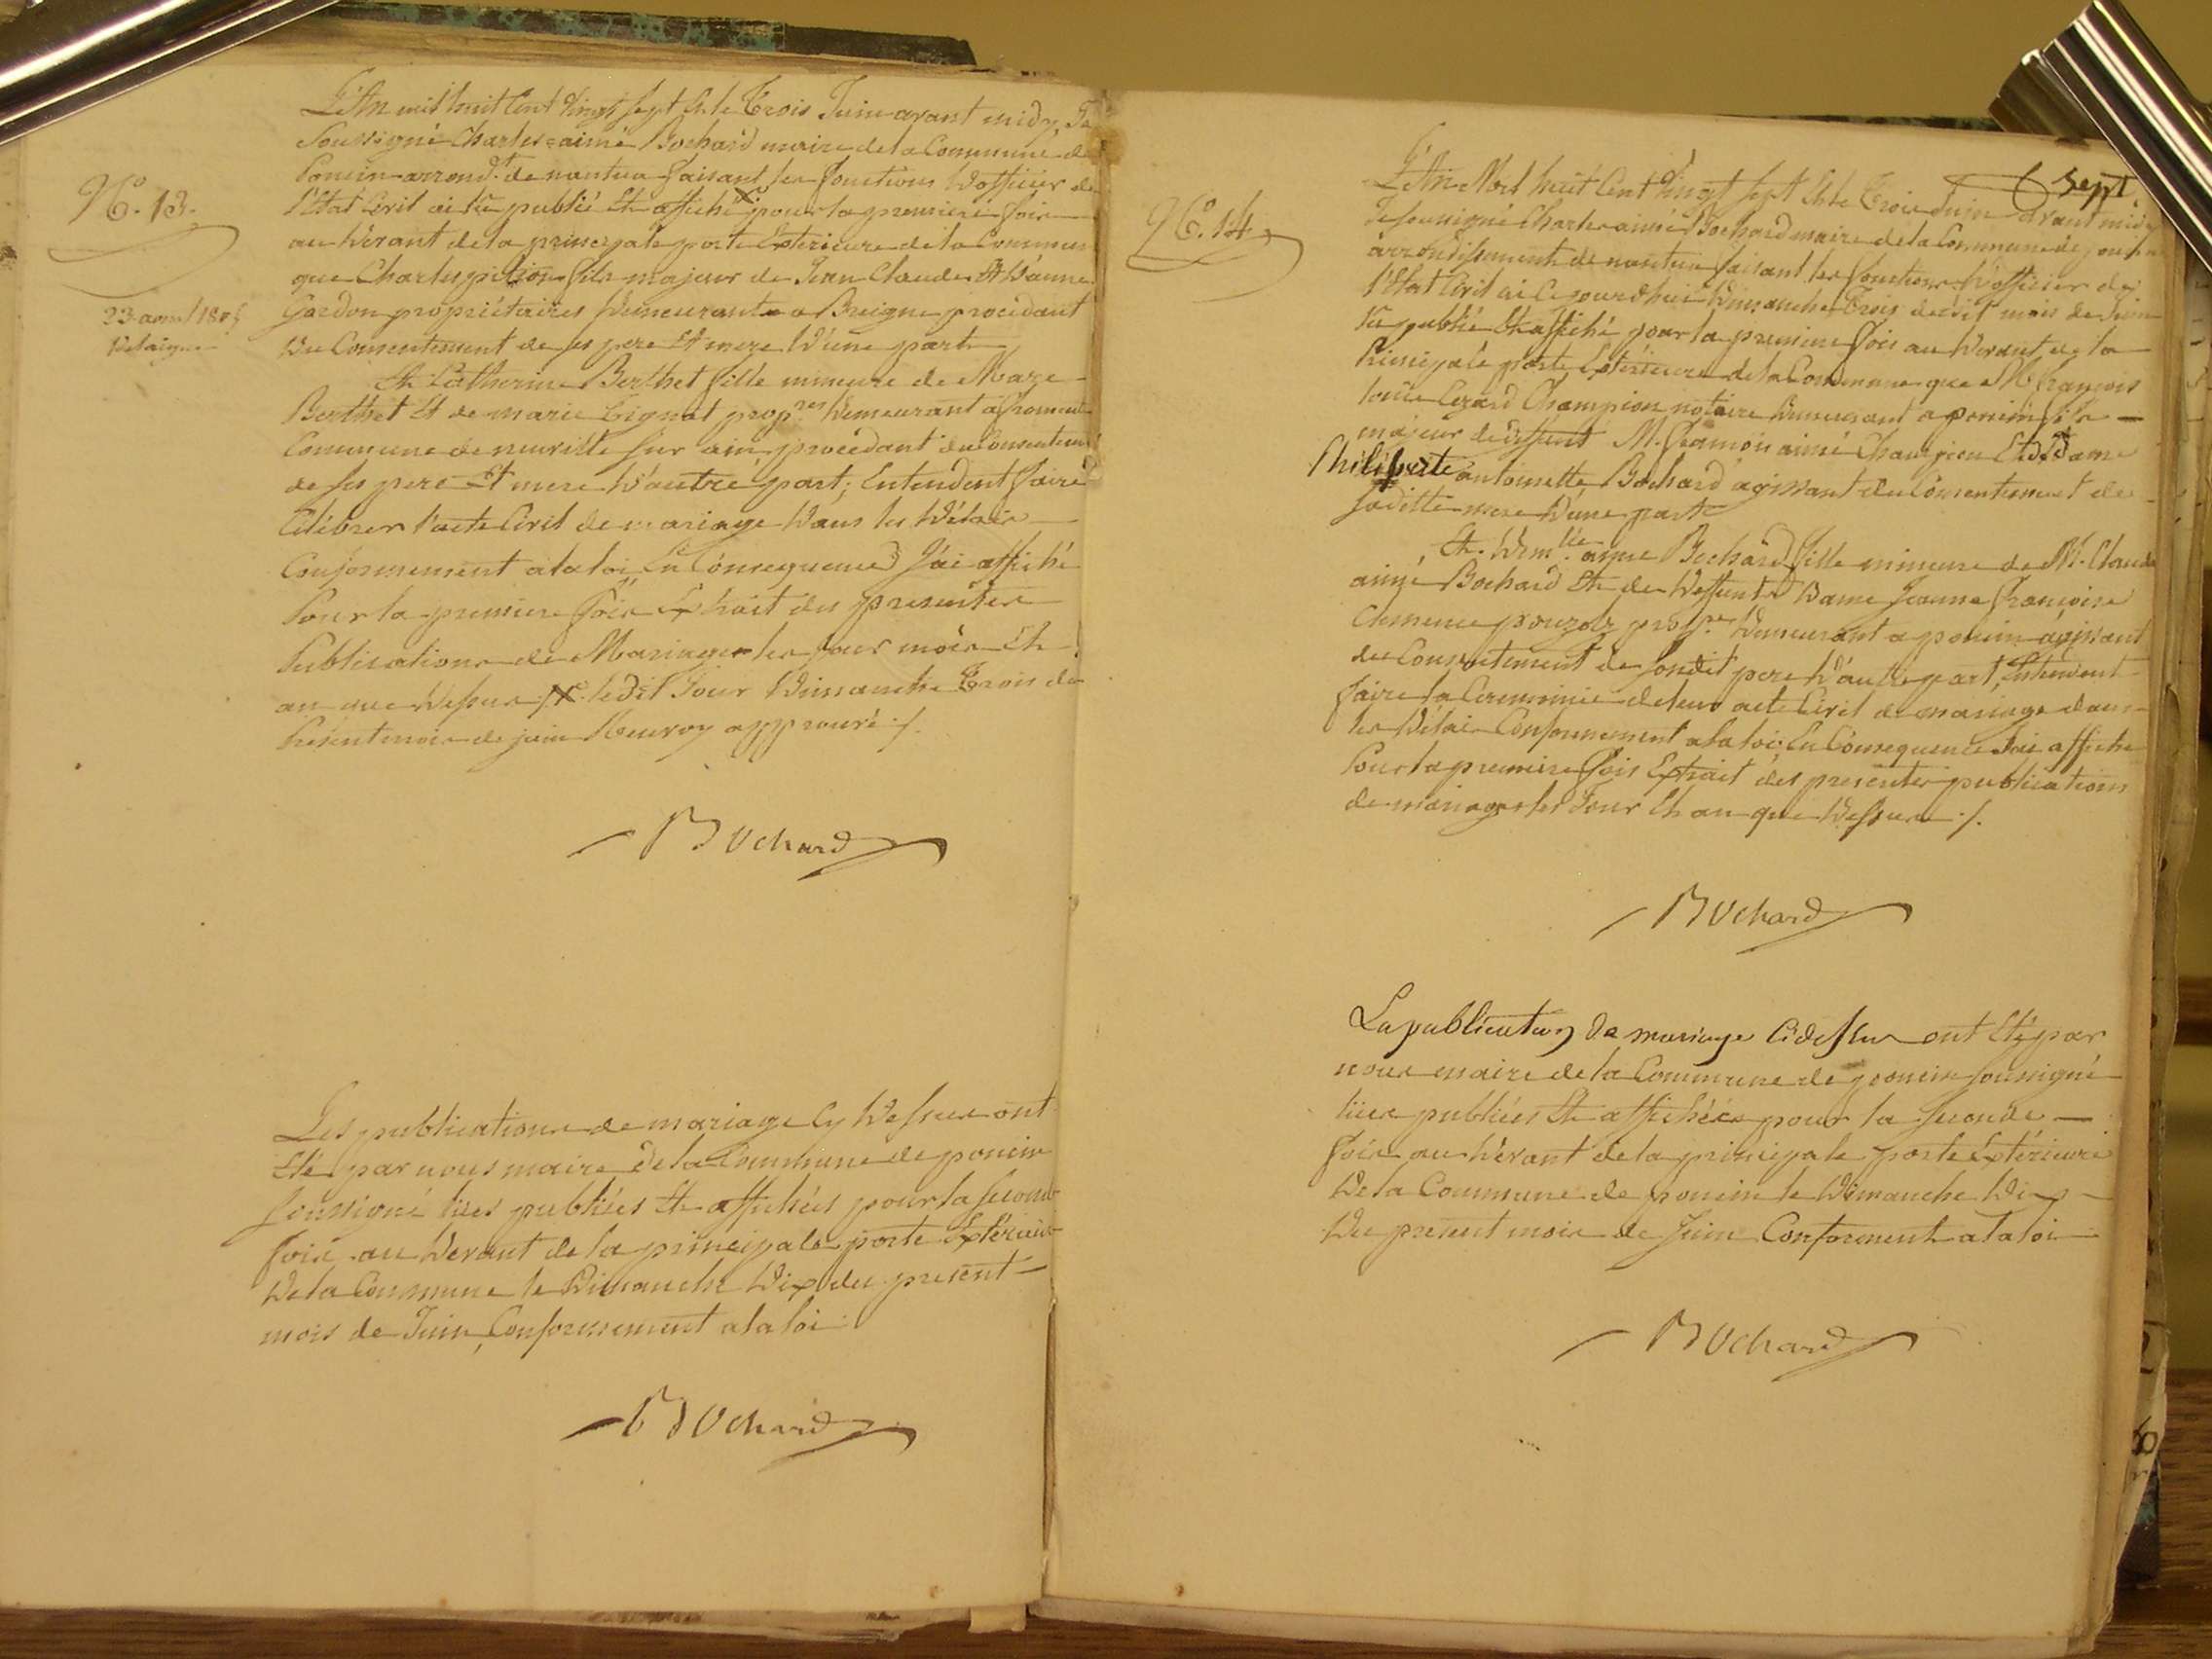 N.o 13.
23 avril 1805
L'An mil huit Cent Vingt Sept & le Trois Juin avant midy, Je
Soussigné Charles aimé Bochard maire de la Commune de
Poncin arrond.t de nantua faisant les fonctions d'officier de
l'Etat Civil ai lû publié & affiché pour la premiere fois
au devant de la principale porte Extérieure de la Commune
que Charles pition fils majeur de Jean Claude & d'anne
Gardon propriétaires demeurants a Breigne procédant
du Consentement de ses pere & mere d'une part
& Catherine Berthet fille mineure de Maze
Berthet Et de marie Cignat prop.res demeurant à froment
Commune de neuville sur ain, procédant du Consentement
de ses pere Et mere d'autre part; Entendent faire
Célébrer l'acte Civil de mariage dans les délais
Conformement a la loi En Consequence J'ai affiché
Pour la premiere fois Extrait des presentes
Publications de Mariages les jour mois &
an que dessus ./. ledit Jour Dimanche Trois du
Présent mois de juin Renvoy approuvé ./.
Bochard
Les publications de mariage Cy dessus ont
Eté par nous maire de la Commune de poncin
soussigné lües publiées & affichées pour la seconde
fois au devant de la principale porte Extérieure
de la Commune le Dimanche Dix du present
mois de Juin, Conformement a la loi
Bochard
sept
N.o 14
L'An Mil huit Cent Vingt Sept & le Trois Juin avant midy
Je soussigné Charles aimé Bochard maire de la Commune de poncin
arrondissement de nantua faisant les fonctions d'officier de
l'Etat Civil ai Cejourd'hui Dimanche Trois dudit mois de Juin
lû publié & affiché pour la premiere fois au devant de la
Principale porte Extérieure de la Commune que M. françois
louis Champion notaire demeurant a poncin fils
majeur de deffunt M. aimé Champion Et de Dame
Philiberte antoinette Bochard agissant du Consentement de
sa ditte mere d'une part
&. Dem.lle anne Bochard fille mineure de M. Claude
aimé Bochard & de deffunte Dame Jeanne françoise
Clemence pouzolz prop.re demeurant a poncin agissant
du Consentement de sondit pere d'autre part, Entendent
faire la Ceremonie de leur acte Civil de mariage dans
les délais Conformement a la loi; En Consequence J'ai affiché
Pour la premiere fois Extrait des presentes publications
de mariages les Jour & an que dessus ./.
Bochard
La publication de mariage Cidessus ont Eté par
nous maire de la Commune de poncin soussigné
lües publiées & affichées pour la seconde
fois au devant de la principale porte Extérieure
de la Commune de poncin le Dimanche Dix
du present mois de Juin Conforment a la loi
Bochard